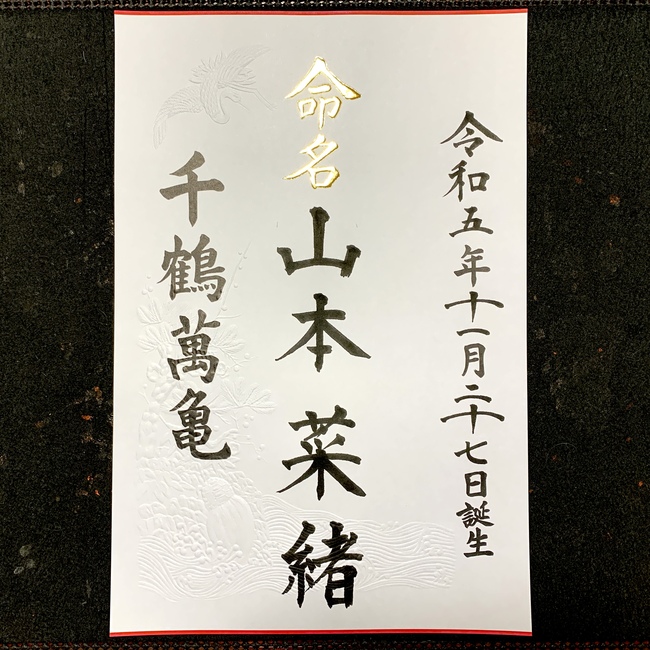 令和五年十一月二十七日誕生
命名
山本菜緒
千鶴萬亀